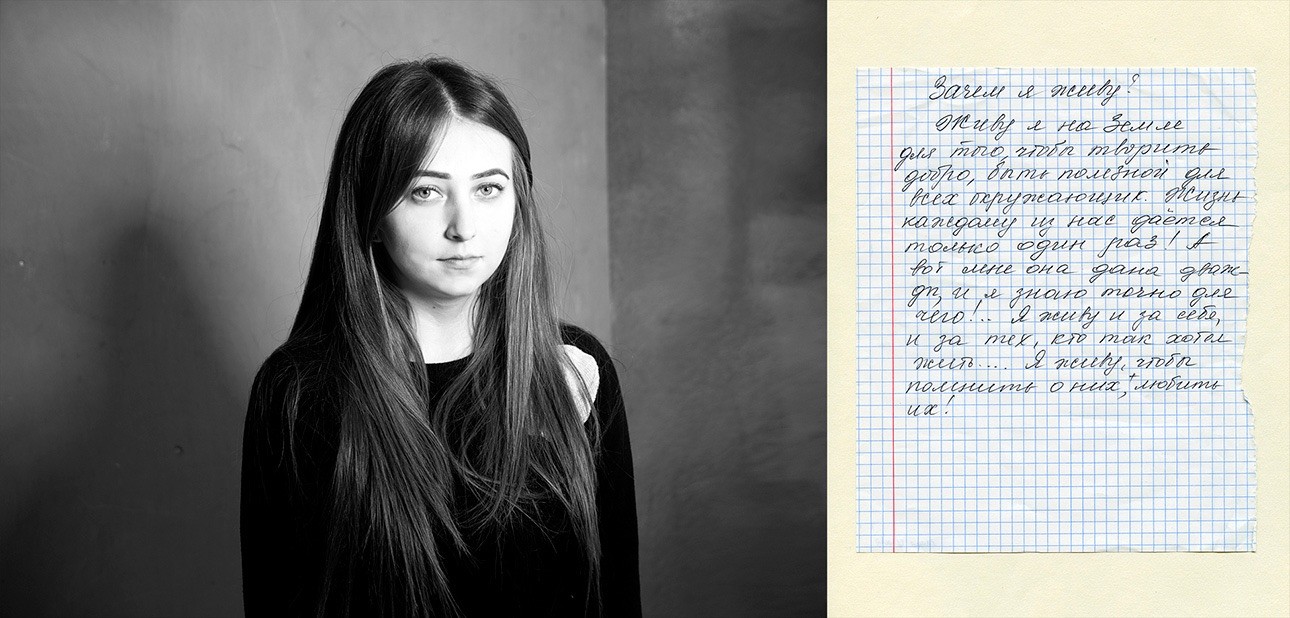 Зачем я живу?
Живу я на Земле
для того, чтобы творить
добро, быть полезной для
всех окружающих. Жизнь
каждому из нас даётся
только один раз! А
вот мне она дана дваж-
ды, и я знаю точно для
чего!.. Я живу и за себя,
и за тех, кто так хотел
жить.... Я живу, чтобы
помнить о них, + любить
их!